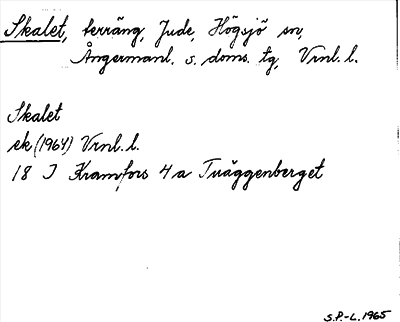 Skalet, terräng, Jude, Högsjö sn,
Ångermanl. s. doms. tg, Vrnl. l.
Skalet
ek (1964) Vrnl. l.
18 J Kramfors 4 a Tväggenberget
S.P.-L. 1965